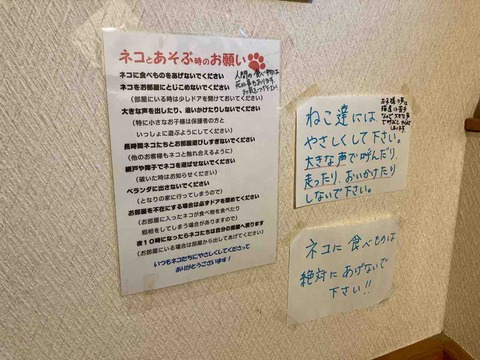 ネコとあそぶ時のお願い
ネコに食べものをあげないでください
ネコをお部屋にとじこめないでください
（部屋にいる時は少しドアを開けておいてください）
大きな声を出したり、追いかけたりしないでください
（特に小さなお子様は保護者の方と
いっしょに遊ぶようにしてください）
長時間ネコたちとお部屋遊びしすぎないでください
（他のお客様もネコと触れ合えるように）
網戸や障子でネコを遊ばせないでください
（破いた時はお知らせください）
ベランダに出さないでください
（となりの家に行ってしまうので）
お部屋を不在にする場合は必ずドアを閉めてください
（お部屋に入ったネコが食べ物を食べたり
粗相をしてしまう場合がありますので）
夜１０時になったらネコたちは自分の部屋へ戻ります
（お部屋にいる場合は部屋から出してあげてください）
いつもネコたちにやさしくしてくださって
ありがとうございます！
ねこ達には
やさしくして下さい。
大きな声で呼んだり
走ったり、おいかけたり
しないで下さい。
ネコに食べものは
絶対にあげないで
下さい!!